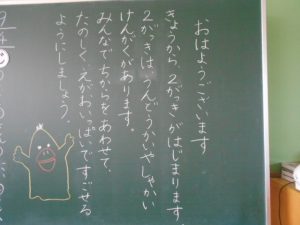 おはようございます
きょうから、2がっきがはじまります。
2がっきは、うんどうかいやしゃかい
けんがくがあります。
みんなでちからをあわせて、
たのしく、えがおいっぱいですごせる
ようにしましょう。
9/4